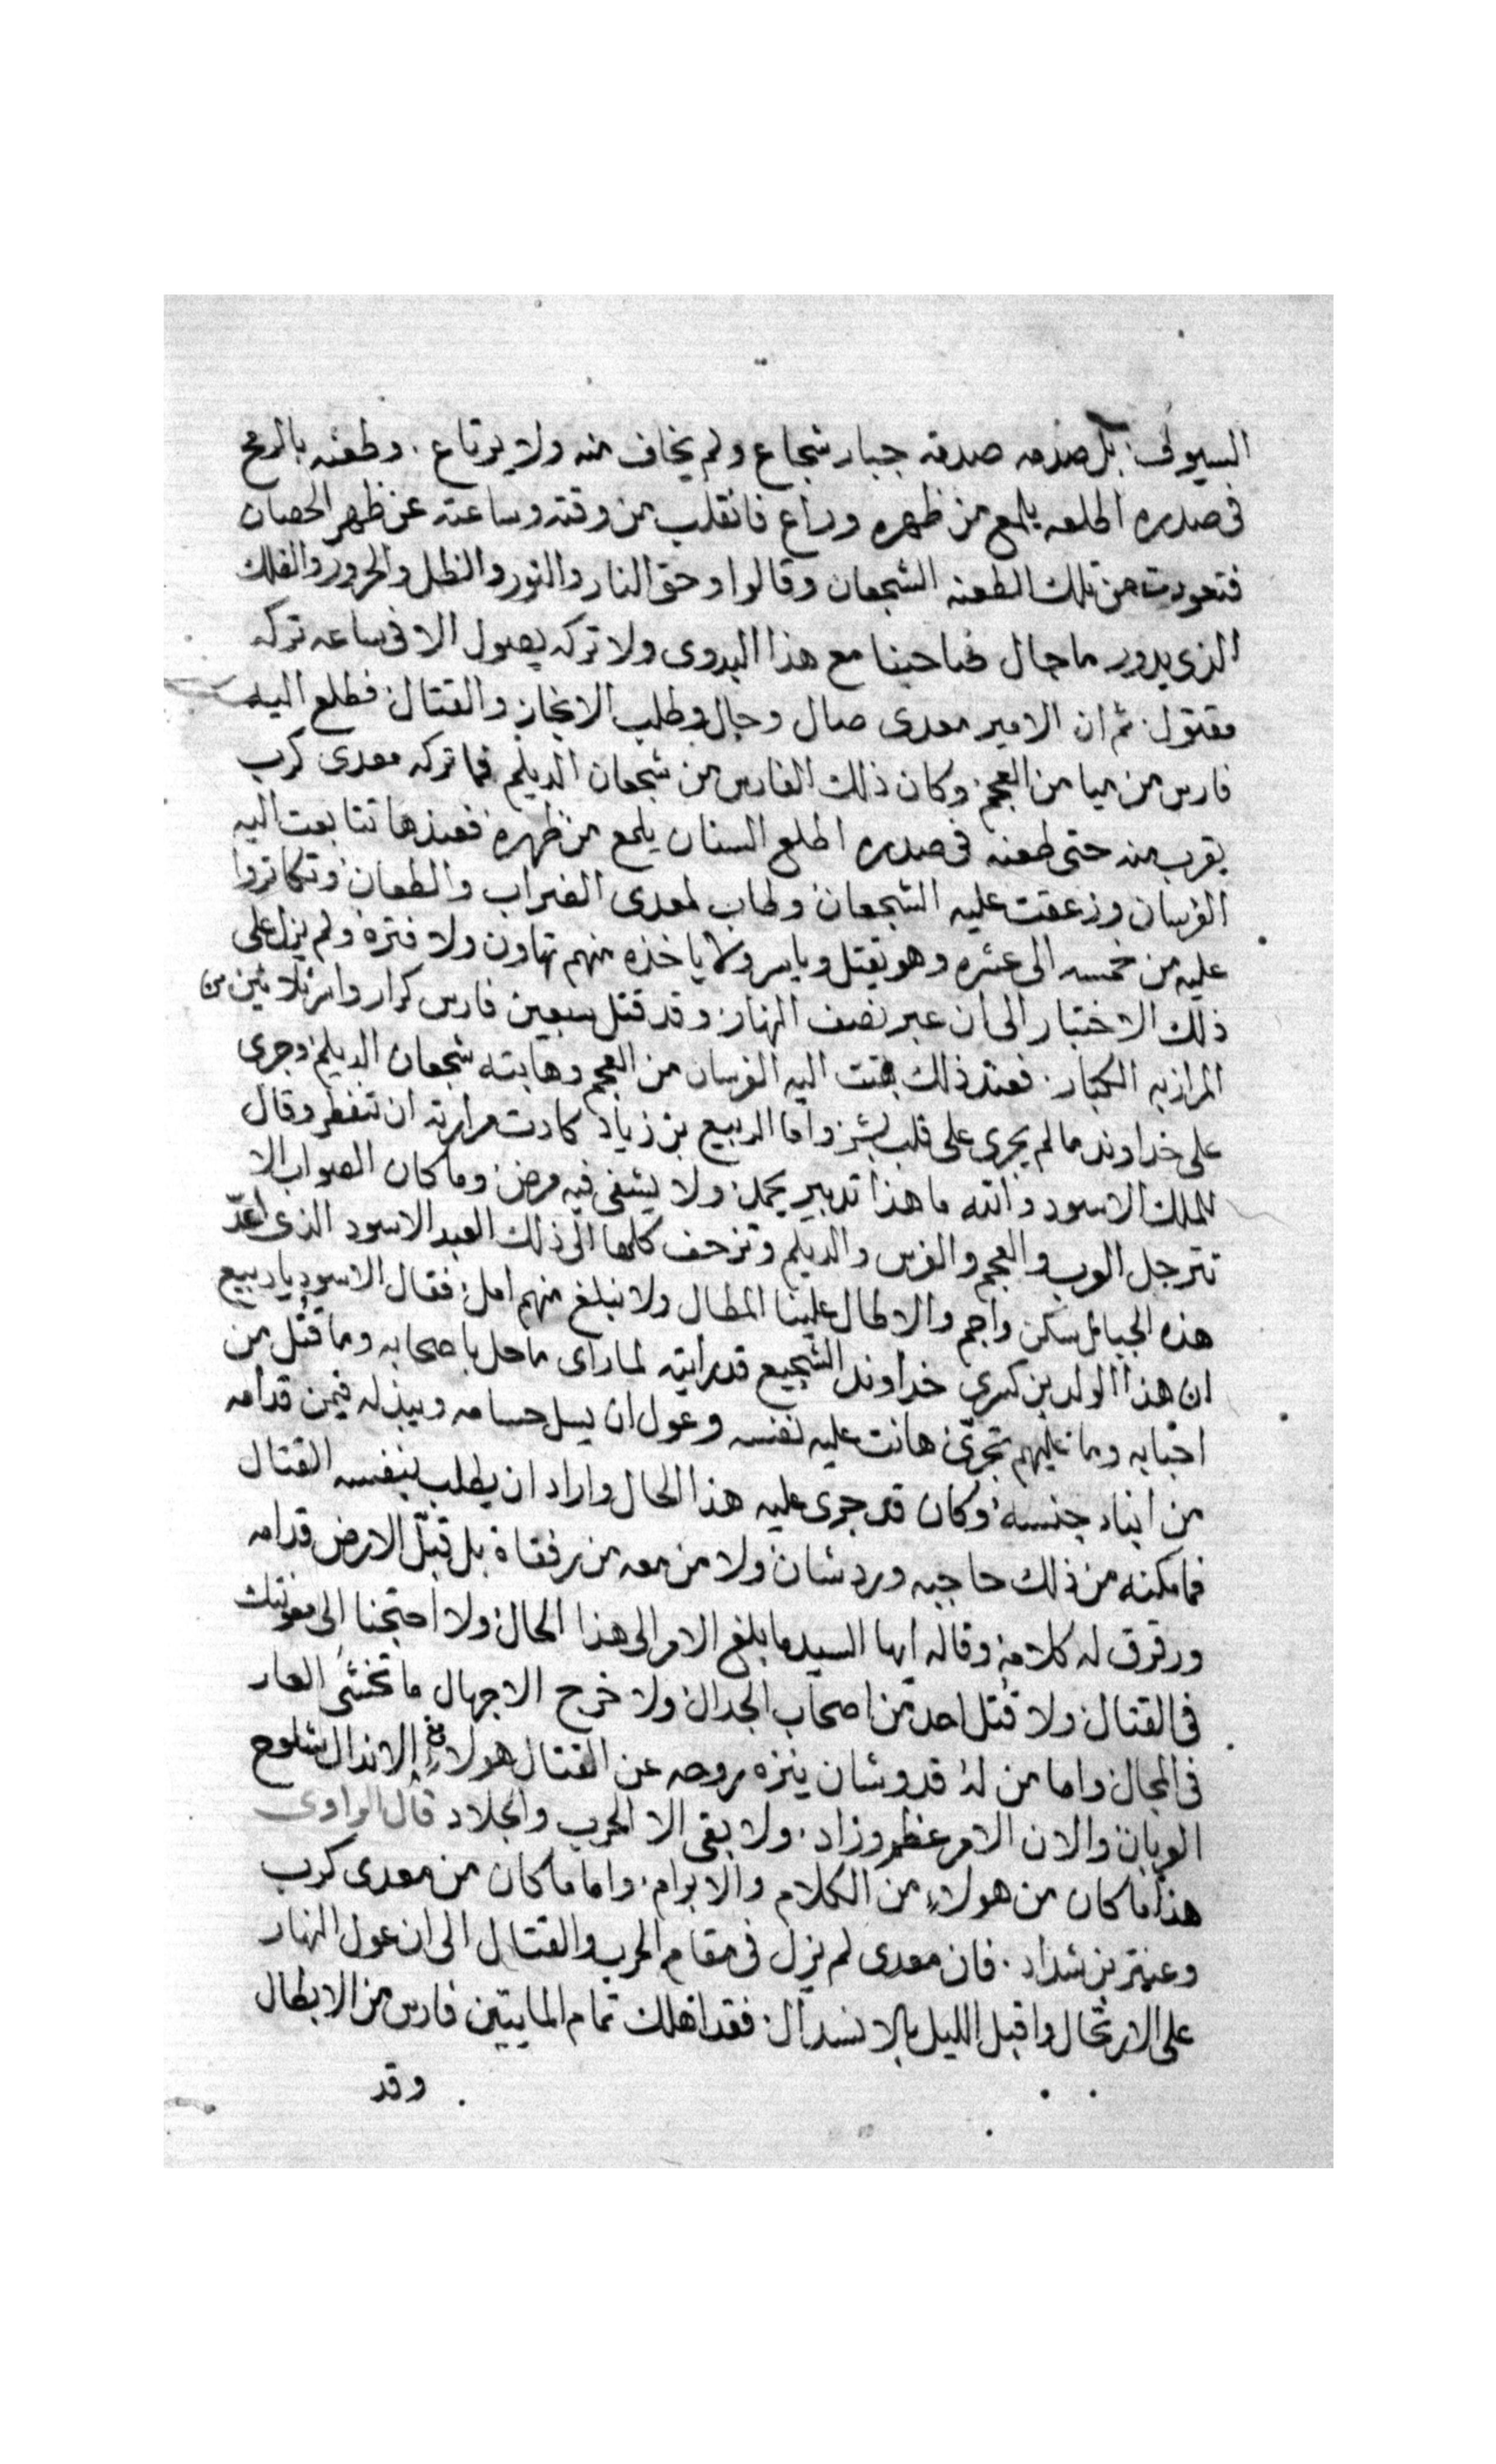 السيوف: بل صدمه صدمة جبار شجاع ولم يخاف منه ولا يرتاع. وطعنه بالرمح
فى صدره اطلعه يلمع من ظهره وراع فانقلب من وقته وساعته عن ظهر الحصان
فتعودت من تلك الطعنه الشجعان وقالوا وحق النار والنور والظل والحرور والفلك
الذى يدور ما جال صاحبنا مع هذا البدوى ولا تركه يصول الا فى ساعه تركه
مقتول: ثم ان الامير معدى صال وجال وطلب الانجاز والقتال فطلع اليه
فارس من ميامن العجم: وكان ذلك الفارس من شجعان الديلم فما تركه معدى كرب
يقرب منه حتى طعنه فى صدره اطلع السنان يلمع من ظهره فعندها تتابعت اليه
الفرسان وزعقت عليه الشجعان وطاب لمعدى الضراب والطعان وتكاثروا
عليه من خمسه الى عشره وهو يقتل وياسر ولا ياخذه منهم تهاون ولا فتره ولم يزل على
ذلك الاختبار الى ان عبر نصف النهار وقد قتل سبعين فارس كرار واسر ثلاثين من
المرازبه الكبار. فعند ذلك بهتت اليه الفرسان من العجم وهابته شجعان الديلم وجرى
على خداوند ما لم يجرى على قلب بشر واما الربيع بن زياد كادت مرارته ان تنفطر وقال
للملك الاسود والله ما هذا تدبير يحمد: ولا يشفى فيه مرض: وما كان الصواب الا
تترجل العرب والعجم والفرس والديلم وتزحف كلها الى ذلك العبد الاسود الذى
هذه الجبال سكن واجم والا طال علينا المطال ولا نبلغ منهم امل: فقال الاسود يا ربيع
ان هذا الولد بن كسرى خداوند الشجيع قد رايته لما راى ما حل باصحابه وما قتل من
احبابه وما عليهم تجرى: هانت عليه نفسه وعول ان يسل حسامه ويبذله فيمن قدامه
من ابناء جنسه: وكان قد جرى عليه هذا الحال واراد ان يطلب بنفسه القتال
فما مكنه من ذلك حاجبه وردشان ولا من معه من رفقاة بل قبّل الارض قدامه
ورقرق له كلامه وقاله ايها السيد ما بلغ الامر الى هذا الحال: ولا احتجنا الى معونتك
فى القتال: ولا قُتل احد من اصحاب الجدال: ولا خرج الا جهال ما تخشى العار
فى المجال: واما من له قدر وشان ينزه روحه عن القتال هولاء الاندال
العربان: والان الامر عظم وزاد. ولا بقى الا الحرب والجلاد قال الراوى
هذا ما كان من هولاء من الكلام والابرام: واما ما كان من معدى كرب
وعنتر بن شداد. فان معدى لم يزل فى مقام الحرب والقتال الى ان عول النهار
على الارتحال واقبل الليل بالانسدال: فقد اهلك تمام المايتين فارس من الابطال
وقد